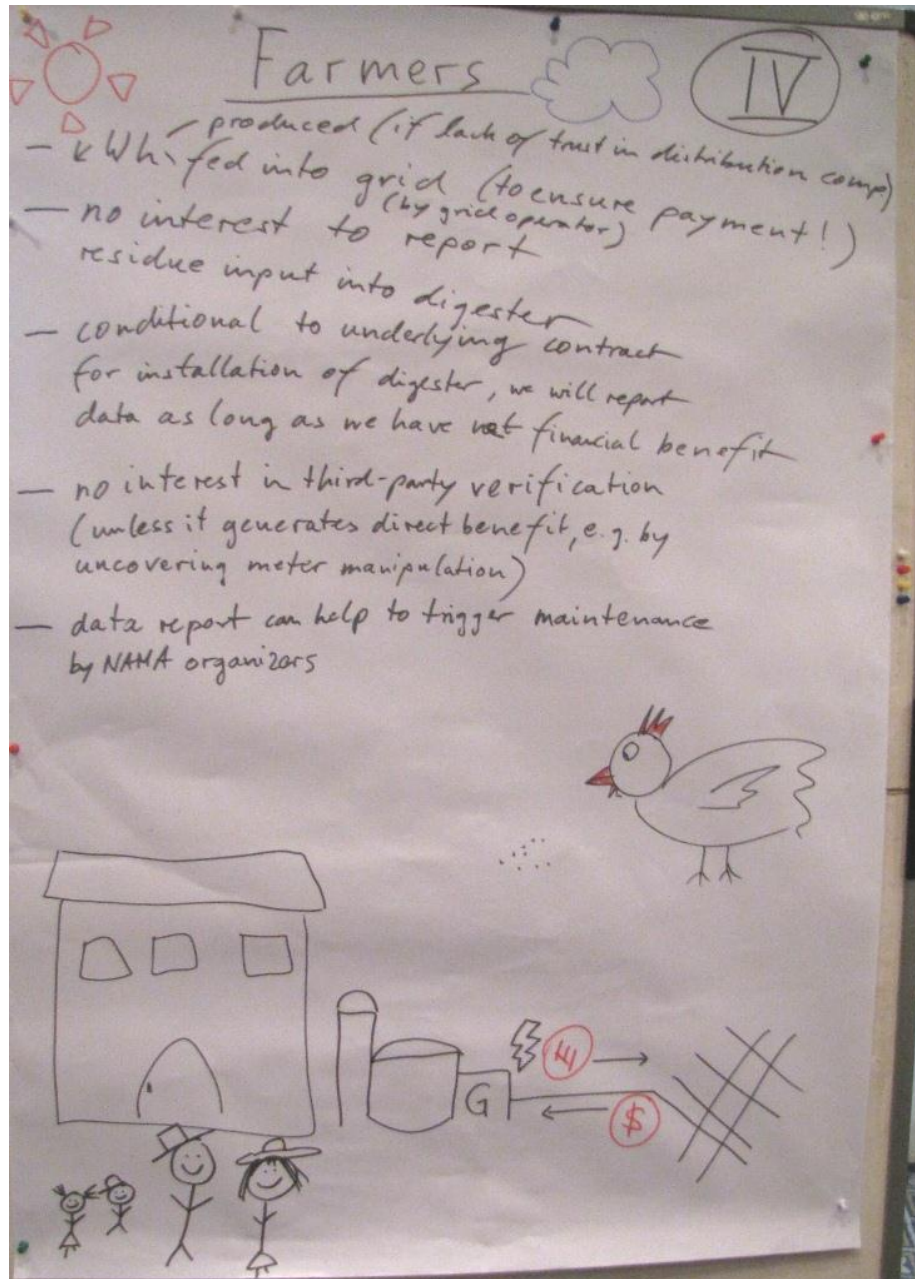 Farmers
IV
produced (if lack of trust in distribution comp)
- kWh fed into grid (to ensure payment!)
(by grid operator)
- no interest to report
residue input into digester
- conditional to underlying contract
for installation of digester, we will report
data as long as we have net financial benefit
- no interest in third-party verification
(unless it generates direct benefit, e.g. by
uncovering meter manipulation)
- data report can help to trigger maintenance
by NAMA organizers
G
$